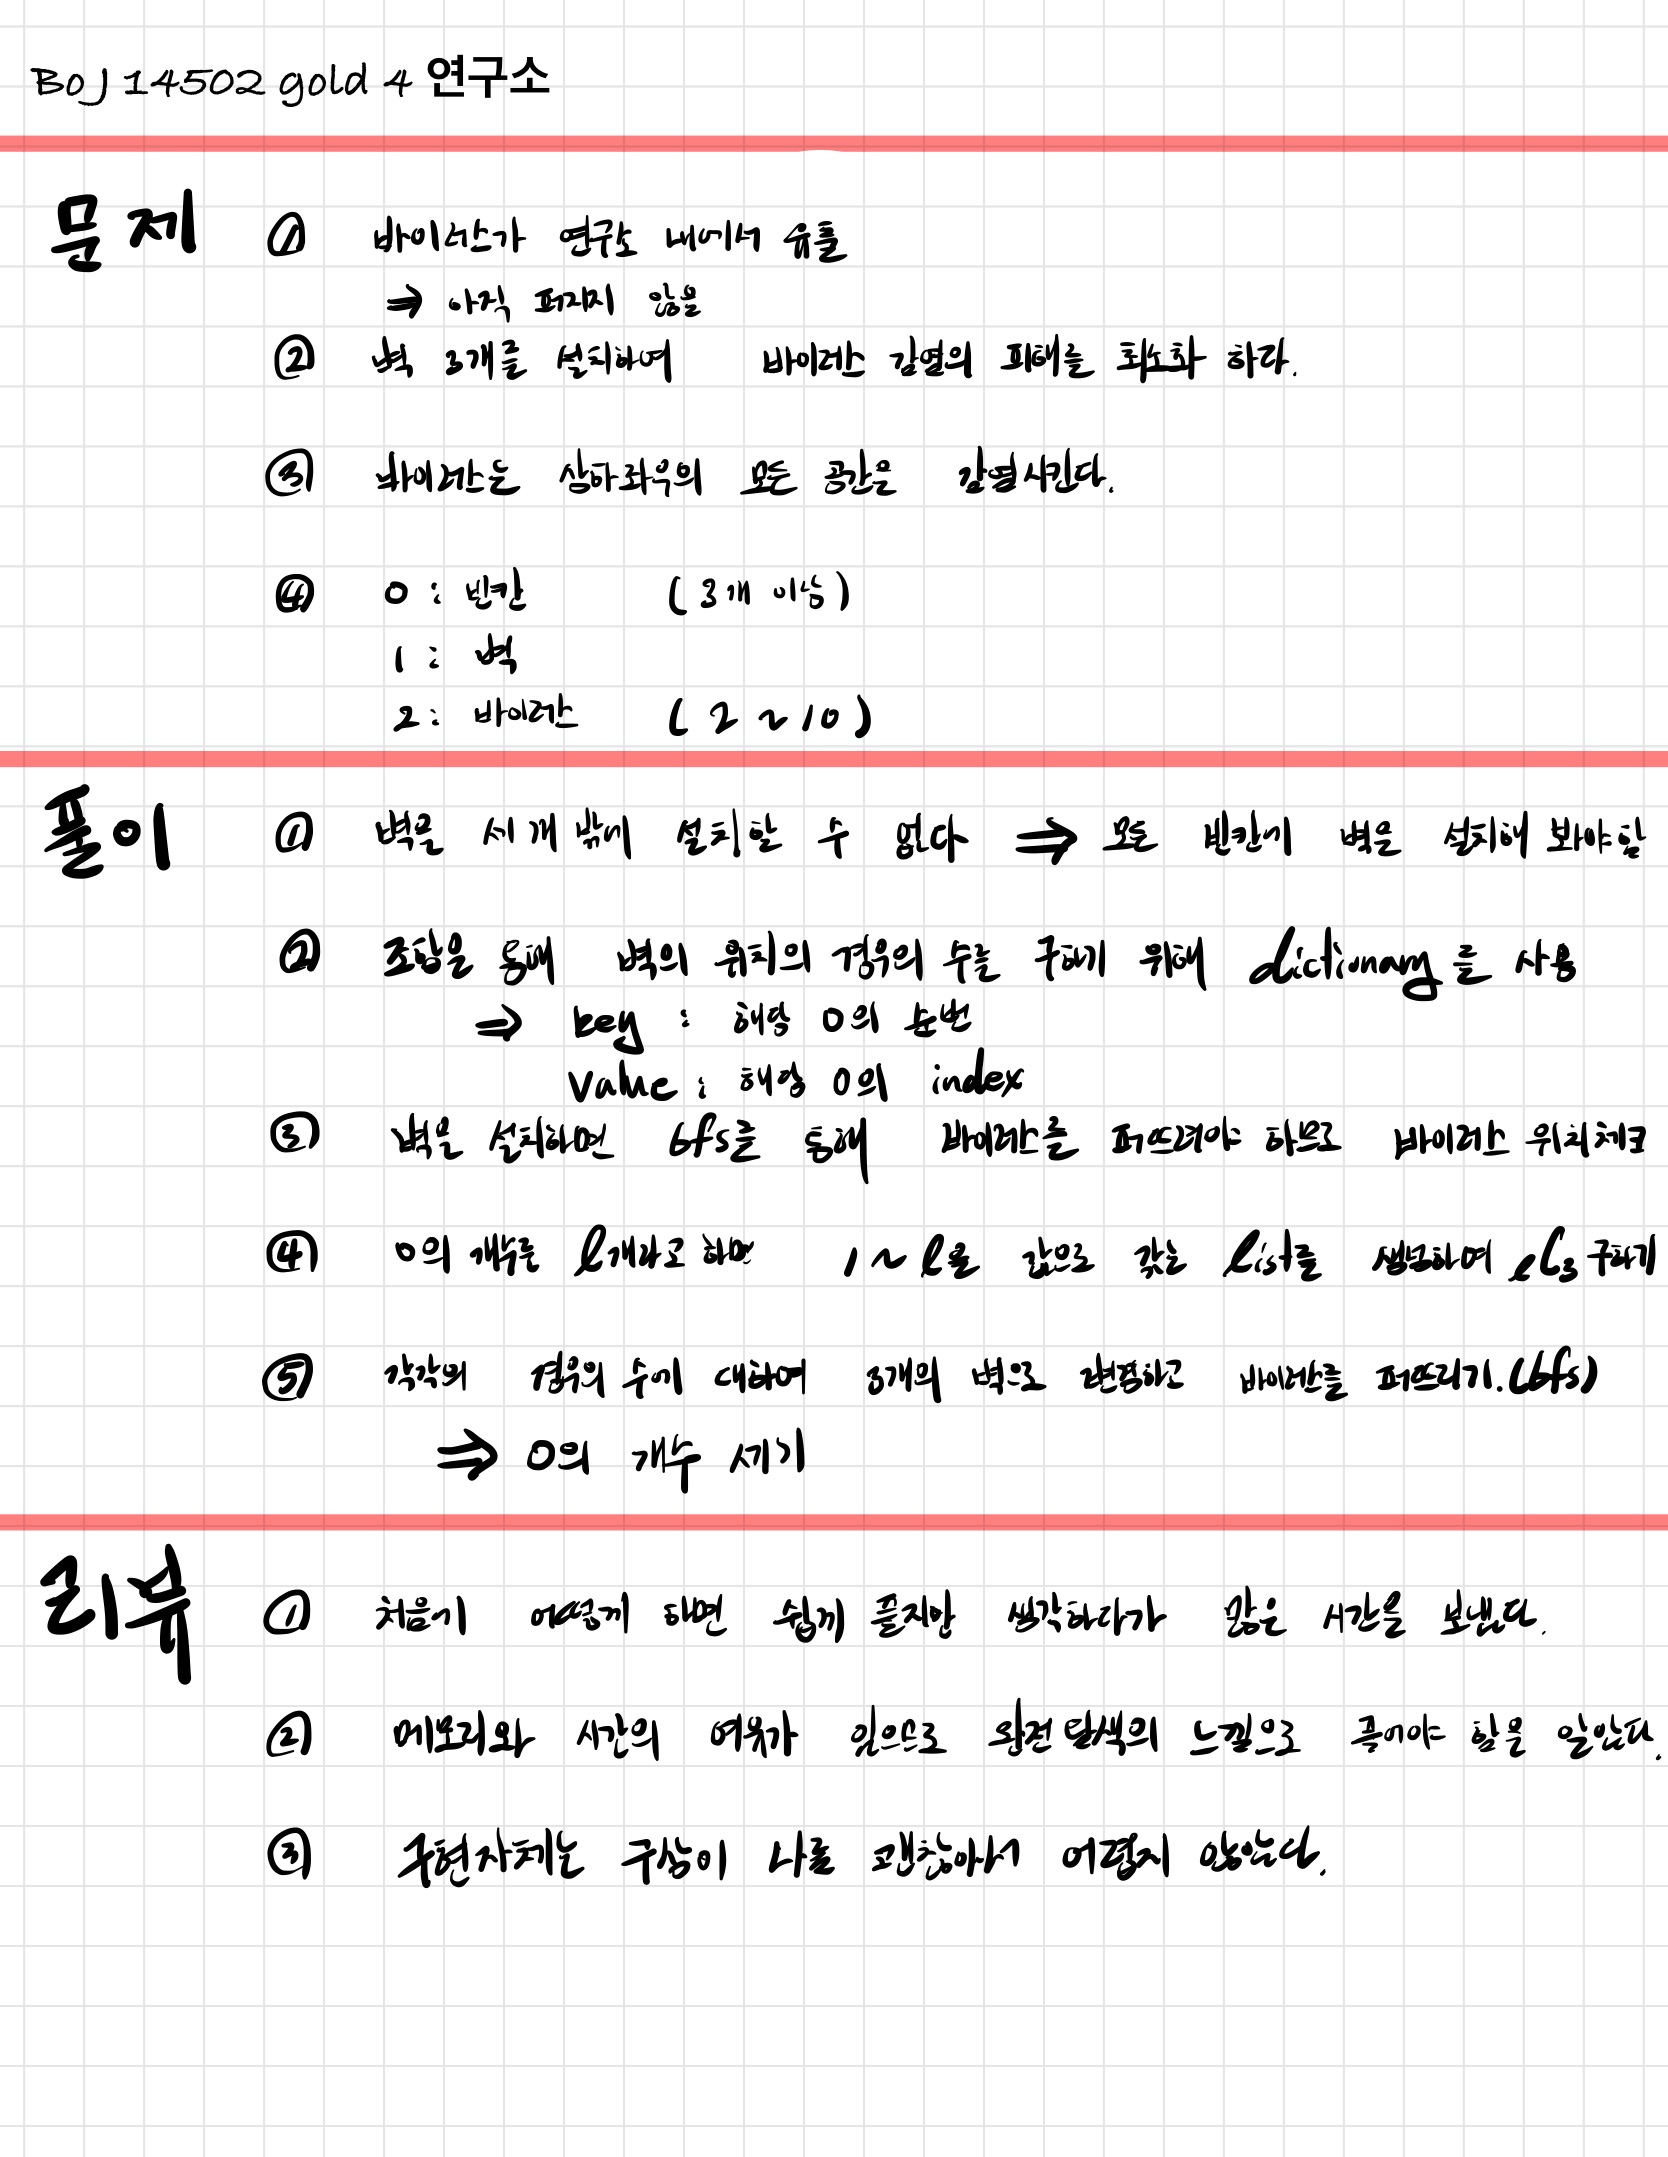 BOJ 14502 gold 4 연구소
문제 ① 바이러스가 연구소 내에서 유출
⇒ 아직 퍼지지 않음
② 벽 3개를 설치하여 바이러스 감염의 피해를 최소화 하다.
③ 바이러스는 상하좌우의 모든 공간을 감염시킨다.
④ 0 : 빈칸 (3개 이상)
1 : 벽
2 : 바이러스 (2 ~ 10)
풀이 ① 벽을 세개 밖에 설치할 수 없다 ⇒ 모든 빈칸에 벽을 설치해 봐야 함
② 조합을 통해 벽의 위치의 경우의 수를 구하기 위해 dictionary를 사용
⇒ key : 해당 0의 순번
value : 해당 0의 index
③ 벽을 설치하면 bfs를 통해 바이러스를 퍼뜨려야 하므로 바이러스 위치 체크
④ 0의 개수를 l개라고 하면 1 ~ l을 값으로 갖는 list를 생성하여 lC3 구하기
⑤ 각각의 경우의 수에 대하여 3개의 벽으로 변경하고 바이러스를 퍼뜨리기. (bfs)
⇒ 0의 개수 세기
리뷰 ① 처음에 어떻게 하면 쉽게 풀지만 생각하다가 많은 시간을 보냈다.
② 메모리와 시간의 여유가 있으므로 완전탐색의 느낌으로 풀어야 함을 알았다.
③ 구현자체는 구상이 나름 괜찮아서 어렵지 않았다.